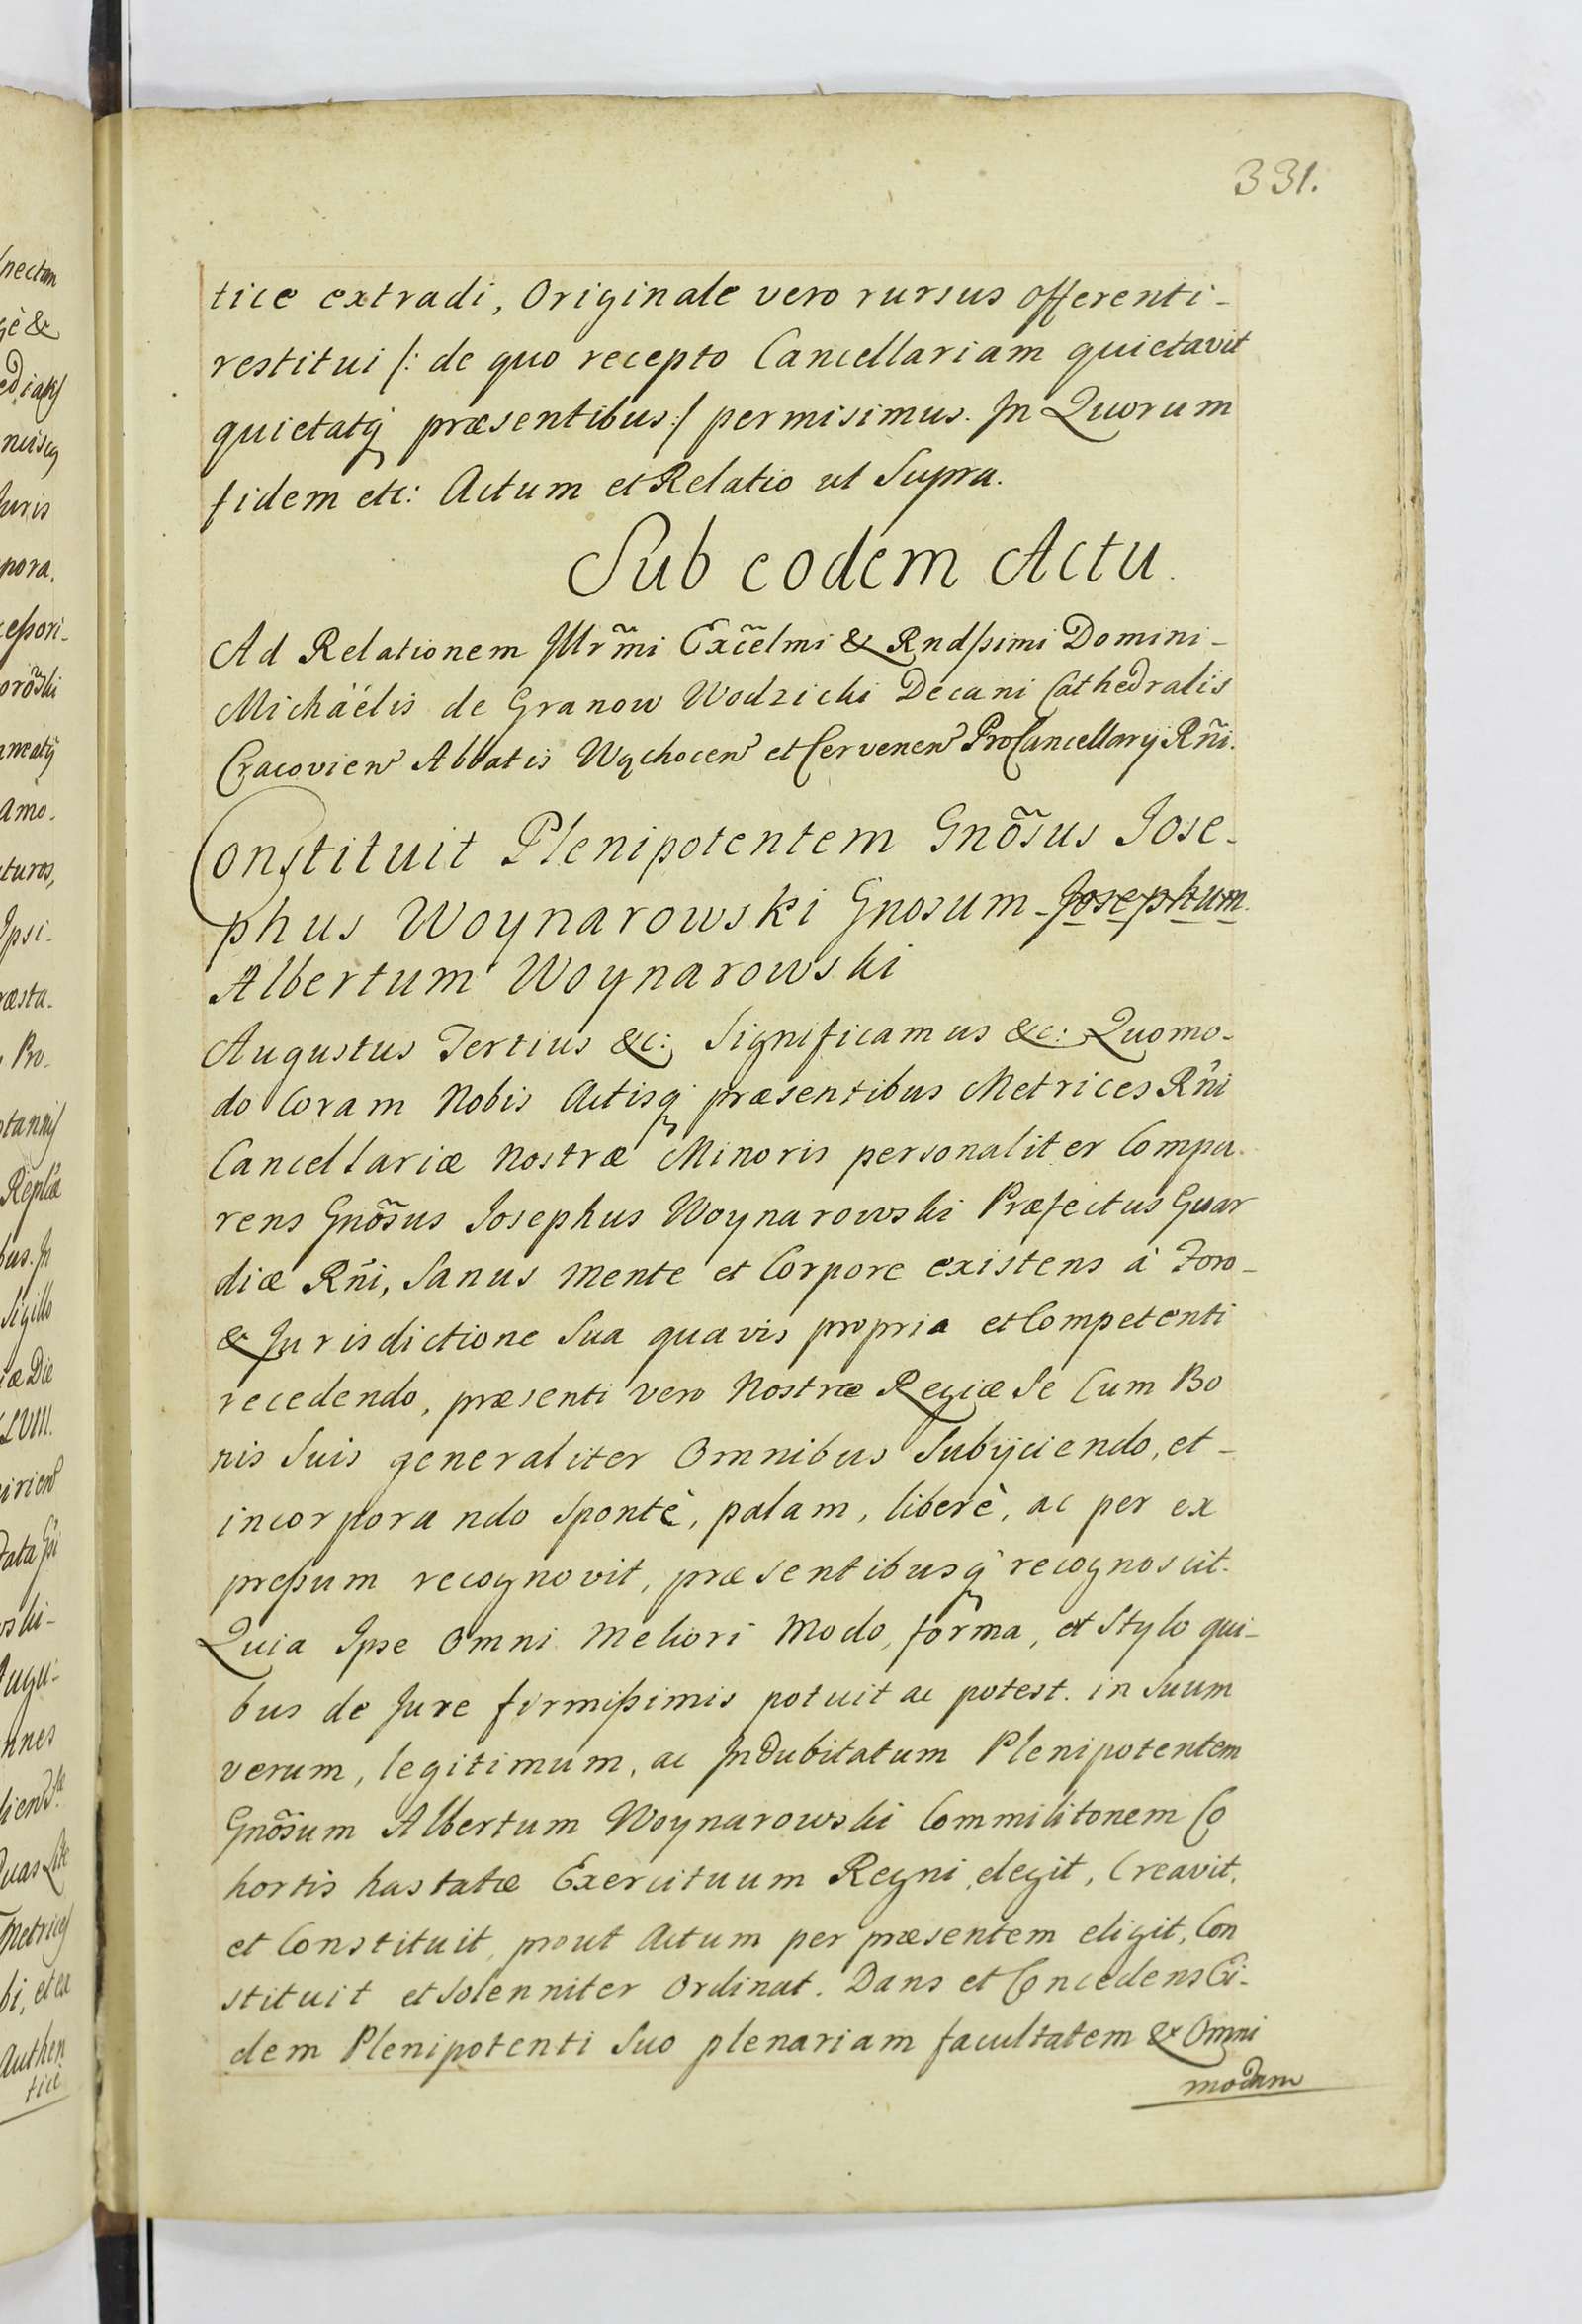 331.
tice extradi, Originale vero rursus offerenti-
restitui /: de quo recepto Cancellariam quietavit
quietatq præsentibus :/ permisimus. In Quorum
fidem etc: Actum et Relatio ut Supra.
Sub eodem Actu.
Ad Relationem Illr̃mi Exc̃elmi & Rndßimi Domini-
Michäélis de Granow Wodzicki Decani Cathedralis
Cracovien Abbatis Wąchocen et Cervenen ProCancellarij Rñi.
Constituit Plenipotentem Gnõsus Jose-
phus Woynarowski Gnosum - Josephum
Albertum Woynarowski
Augustus Tertius &c: Significamus &c: Quomo-
do Coram Nobis Actisq præsentibus Metrices Rñi
Cancellariæ Nostræ Minoris personaliter Compa-
rens Gnõsus Josephus Woynarowski Præfectus Guar
diæ Rñi, Sanus Mente et Corpore existens à Foro-
& Jurisdictione Sua quavis propria et Competenti
recedendo, præsenti vero Nostræ Regiæ Se Cum Bo
nis Suis generaliter Omnibus Subijciendo, et-
incorporando Spontè, palam, liberè, ac per ex
preßum recognovit, præsentibusq recognoscit.
Quia Ipse Omni Meliori Modo, forma, et Stylo qui-
bus de Jure firmißimis potuit ac potest. in Suum
verum, legitimum, ac Indubitatum Plenipotentem
Gnõsum Albertum Woynarowski Commilitonem Co
hortis hastatæ Exercituum Regni elegit, Creavit,
et Constituit, prout Actum per præsentem eligit, Con
stituit et Solenniter Ordinat. Dans et Concedens Ei-
dem Plenipotenti Suo plenariam facultatem & Omni
modam